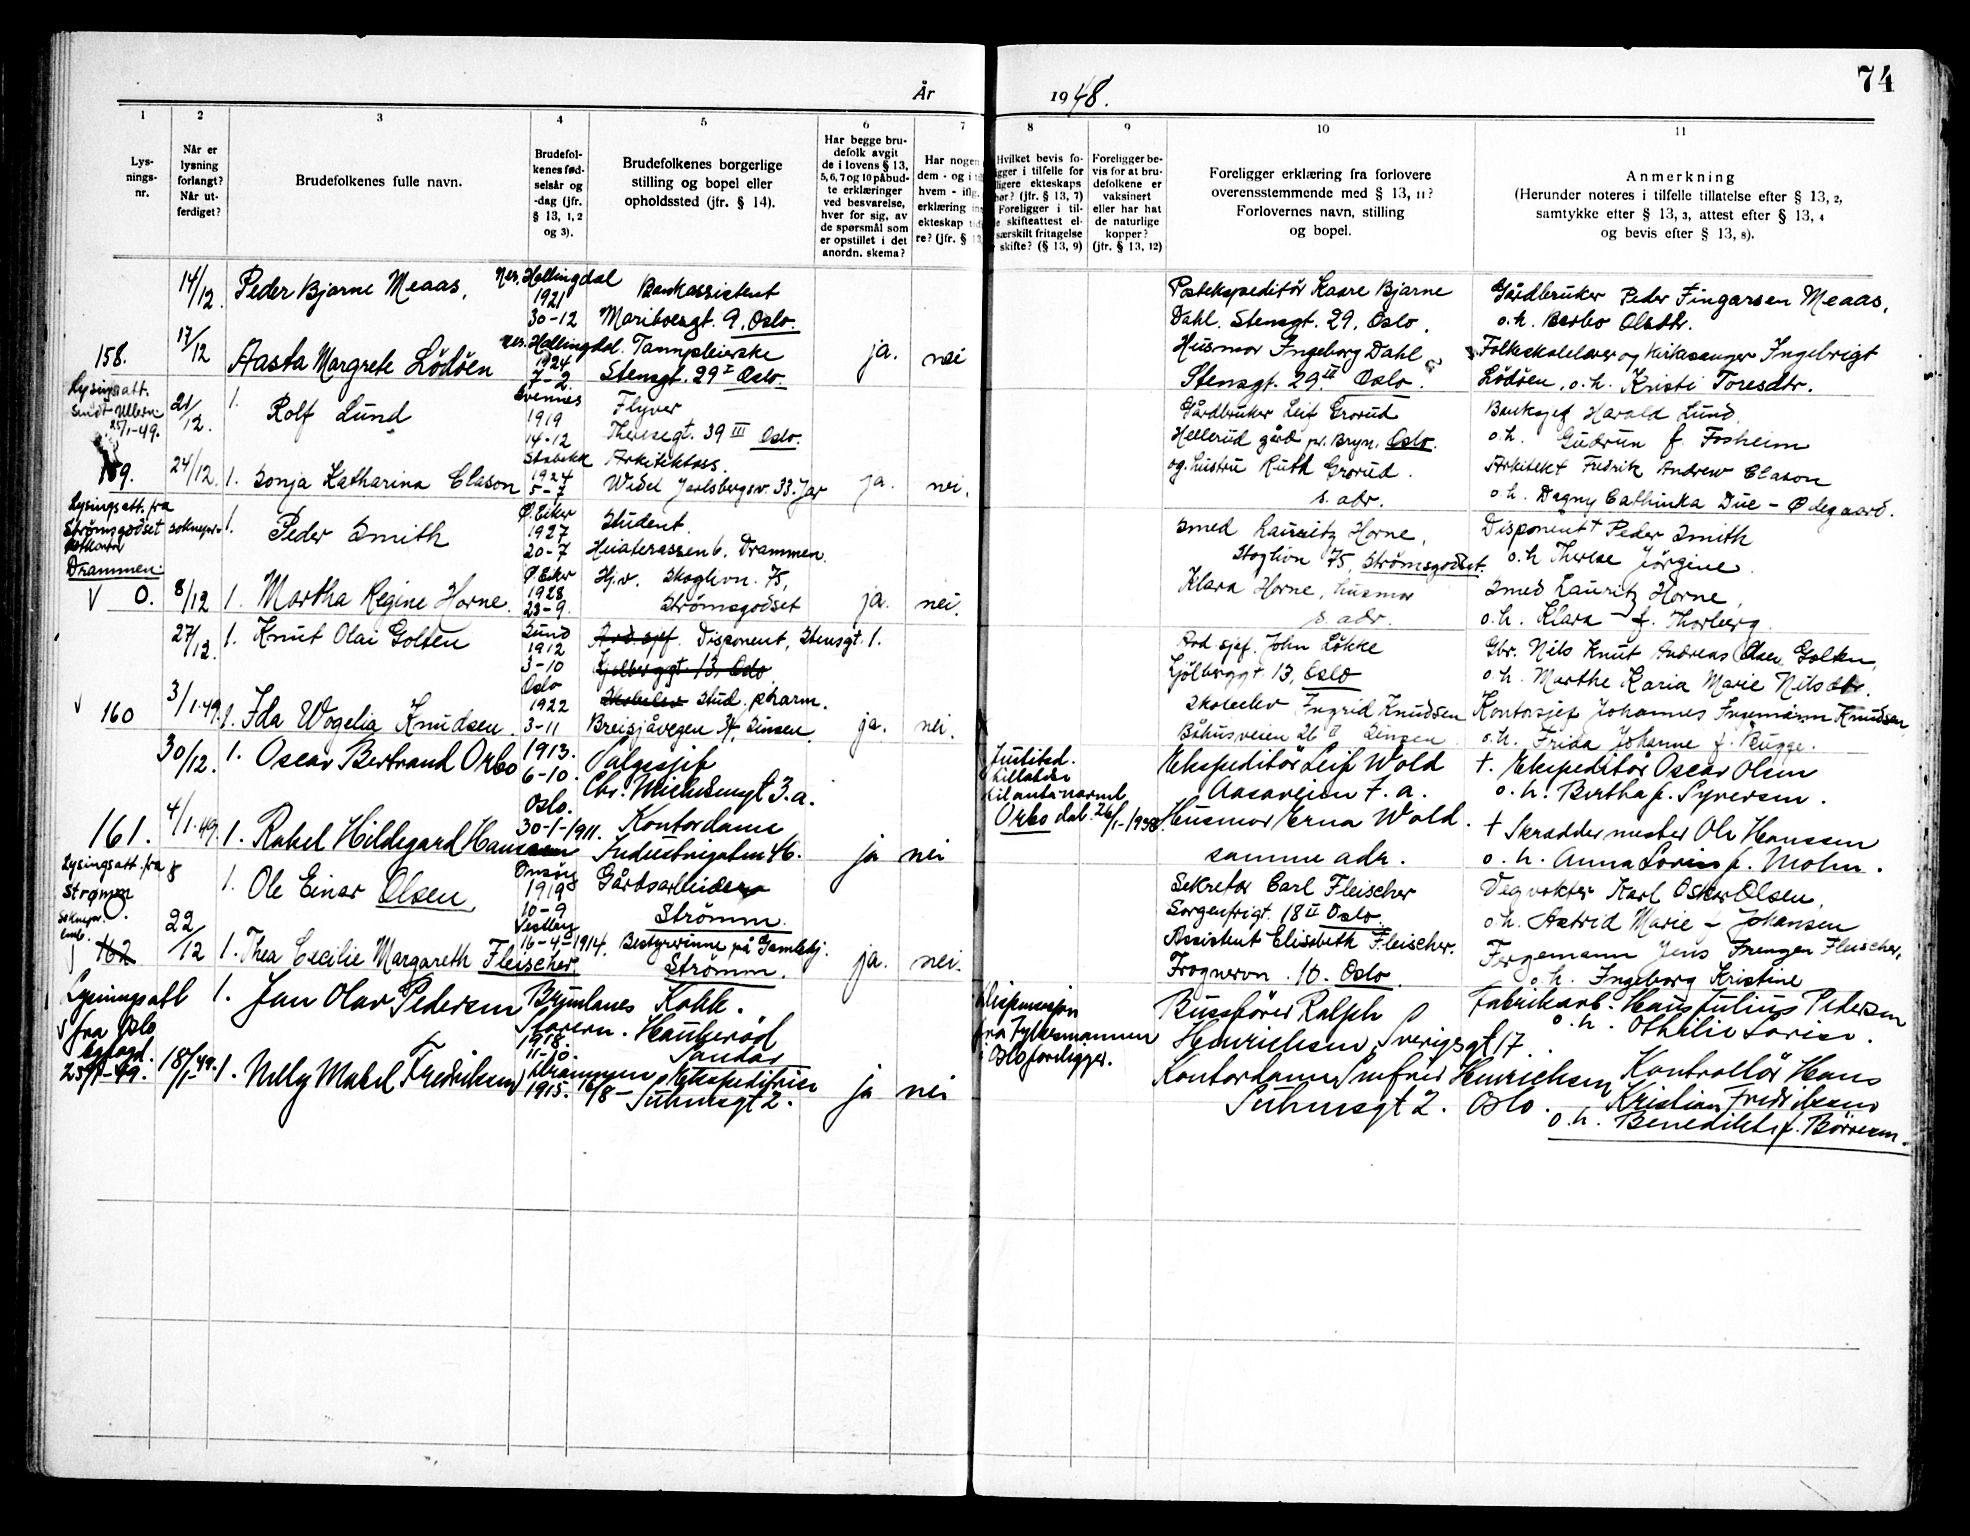 74
År 1948.
1
Lys-
nings-
nr.
2
Når er
lysning
forlangt?
Når ut-
ferdiget?
3
Brudefolkenes fulle navn.
4
Brudefol-
kenes fød-
selsår og
-dag (jfr.
§ 13, 1, 2
og 3).
5
Brudefolkenes borgerlige
stilling og bopel eller
opholdssted (jfr. § 14).
6
Har begge bru-
defolk avgit
de i lovens § 13,
5, 6, 7 og 10 påbud-
te erklæringer
ved besvarelse,
hver for sig, av
de spørsmål som
er opstillet i det
anordn. skema?
7
Har nogen
dem - og i
hvem - iflg.
erklæring
ekteskap
re? (jfr. §
8
Hvilket bevis fo-
igger i tilfelle for
ligere ekteskaps
hør? (jfr. § 13, 7)
Foreligger i til-
e skifteattest el-
særskilt fritagelse
skifte? (§ 13, 9)
9
Foreligger be-
vis for at bru-
defolkene er
vaksinert
eller har hat
de naturlige
kopper?
(jfr. § 13, 12)
10
Foreligger erklæring fra forlovere
overensstemmende med § 13, 11?
Forlovernes navn, stilling
og bopel.
11
Anmerkning
(Herunder noteres i tilfelle tillatelse efter § 13, 2,
samtykke efter § 13, 3, attest efter § 13, 4
og bevis efter § 13, 8).
14/12 Peder Bjarne Meaas, Nes, Hallingdal 1921 30-12
Bankassistent
Mariboesgt. 9, Oslo.
Postekspeditör Kaare Bjarne
Dahl. Stensgt. 29, Oslo.
Gårdbruker Peder Fingarsen Meaas,
o.h. Barbo Olsdtr.
158. 17/12 Aasta Margrete Lödöen Nes, Hallingdal. 1924 7-2
Tannpleierske
Stensgt. 29 I Oslo.
ja. nei
Husmor Ingeborg Dahl
Stensgt. 29 II Oslo.
Folkeskolelærer og kirkesanger Ingebrigt
Lödöen, o.h. Kristi Toresdtr.
Lysingsatt.
sendt Ullern
25/1-49.
21/12. 1. Rolf Lund Evennes 1919 14-12
Flyver
Theresegt. 39 III Oslo.
Gårdbruker Leif Grorud
Hellerud gård pr. Bryn, Oslo.
Banksjef Harald Lund
o.h. Gudrun f. Fosheim
159. 24/12. 1. Sonja Katharina Clason Stabekk 1924 5-7
Arkitektass.
Wedel Jarlsbergsv. 33. Jar
ja. nei.
og hustru Ruth Grorud.
s. adr.
Arkitekt Fredrik Andrew Clason
o.h. Dagny Cathinka Due - Ødegaard.
Lysingsatt. fra
Strømsgodset
Drammen.
soknepr. 1. Peder Smith Ø. Eiker 1927 20-7
Student.
Drammen
Smed Lauritz Horne,
Skoglivn 75, Strømsgodset.
Disponent Peder Smith
o.h Therese Jörgine.
0. 8/12 1. Martha Regine Horne. Ø. Eiker 1928 23-9.
Hj.v. Skoglivn. 75,
Strømsgodset
ja. nei.
Klara Horne, husmor
s. adr.
Smed Lauritz Horne,
o.h. Klara f. Thorberg.
27/12. 1. Knut Olai Golten Sund 1912 3-10
Avd. sjef. Disponent, Stensgt. 1.
Kjølberggt. 13, Oslo
Avd. sjef. John Lökke
Kjölberggt 13, Oslo
Gbr. Nils Knut Andreas Olsen Golten,
o.h. Marthe Karia Marie Nilsdtr.
160 3/1.49. 1. Ida Wogelia Knudsen. Oslo 1922 3-11
Skoleelev stud. pharm.
Breisjåvegen 34, Sinsen
ja. nei.
Skoleelev Ingrid Knudsen
Båhusveien 26 Sinsen
Kontorsjef Johannes Ingemann Knudsen,
o.h. Frida Johanne f. Bugge.
30/12. 1. Oscar Bertrand Orbo 1913. 6-10. Oslo.
Salgssjef
Chr. Michelsensgt 3.a.
Justitsd.
tillatelse
til anta navnet
Orbo dat. 26/1-1938.
Ekspeditör Leif Wold
Aasaveien 7.a.
† Ekspeditör Oscar Olsen
o.h. Bertha f. Syversen.
161. 4/1.49. 1. Rakel Hildegard Hanssen 30-1-1911.
Kontordame
Industrigaten 46.
ja nei
Husmor Erna Wold.
samme adr.
† Skreddermester Ole Hanssen
o.h. Anna Lovise f. Mohn.
Lysingsatt. fra
Strømm
soknepr.
8 1. Ole Einar Olsen, Onsöy 1919 10-9
Gårdsarbeider
Strömm.
Sekretær Carl Fleischer
Sorgenfrigt. 18 II Oslo.
Vegvokter Karl Oskar Olsen,
o.h. Astrid Marie f. Johansen
162 22/12 1. Thea Cecilie Margareth Fleischer Vestby 16-4-1914.
Bestyrerinne på Gamlehj.
Strömm.
ja. nei.
Assistent Elisabeth Fleischer.
Frognervn. 10. Oslo.
Fergemann Jens Frenger Fleischer,
o.h. Ingeborg Kristine
Lysningsatt
fra Oslo
byfogd.
25/1-49.
1. Jan Olav Pedersen Brunlanes Stavern. 1918. 11-10.
Kokk.
Haukeröd
Sandar
Dispensasjon
fra Fylkesmannen
i Oslo foreligger.
Bussförer Ralph
Henrichsen, Sverigsgt 17.
Fabrikarb. Hans Julius Pedersen
o.h. Othilie Lovise.
18/1-49. 1. Nelly Mabel Fredriksen Drammen 1915. 16/8-
Ekspeditrise
Suhmsgt 2.
ja nei
Kontordame Henrichsen
Suhmsgt 2. Oslo.
Kontrollör Hans
Kristian Fredriksen
o.h. Benedikte f. Börresen.